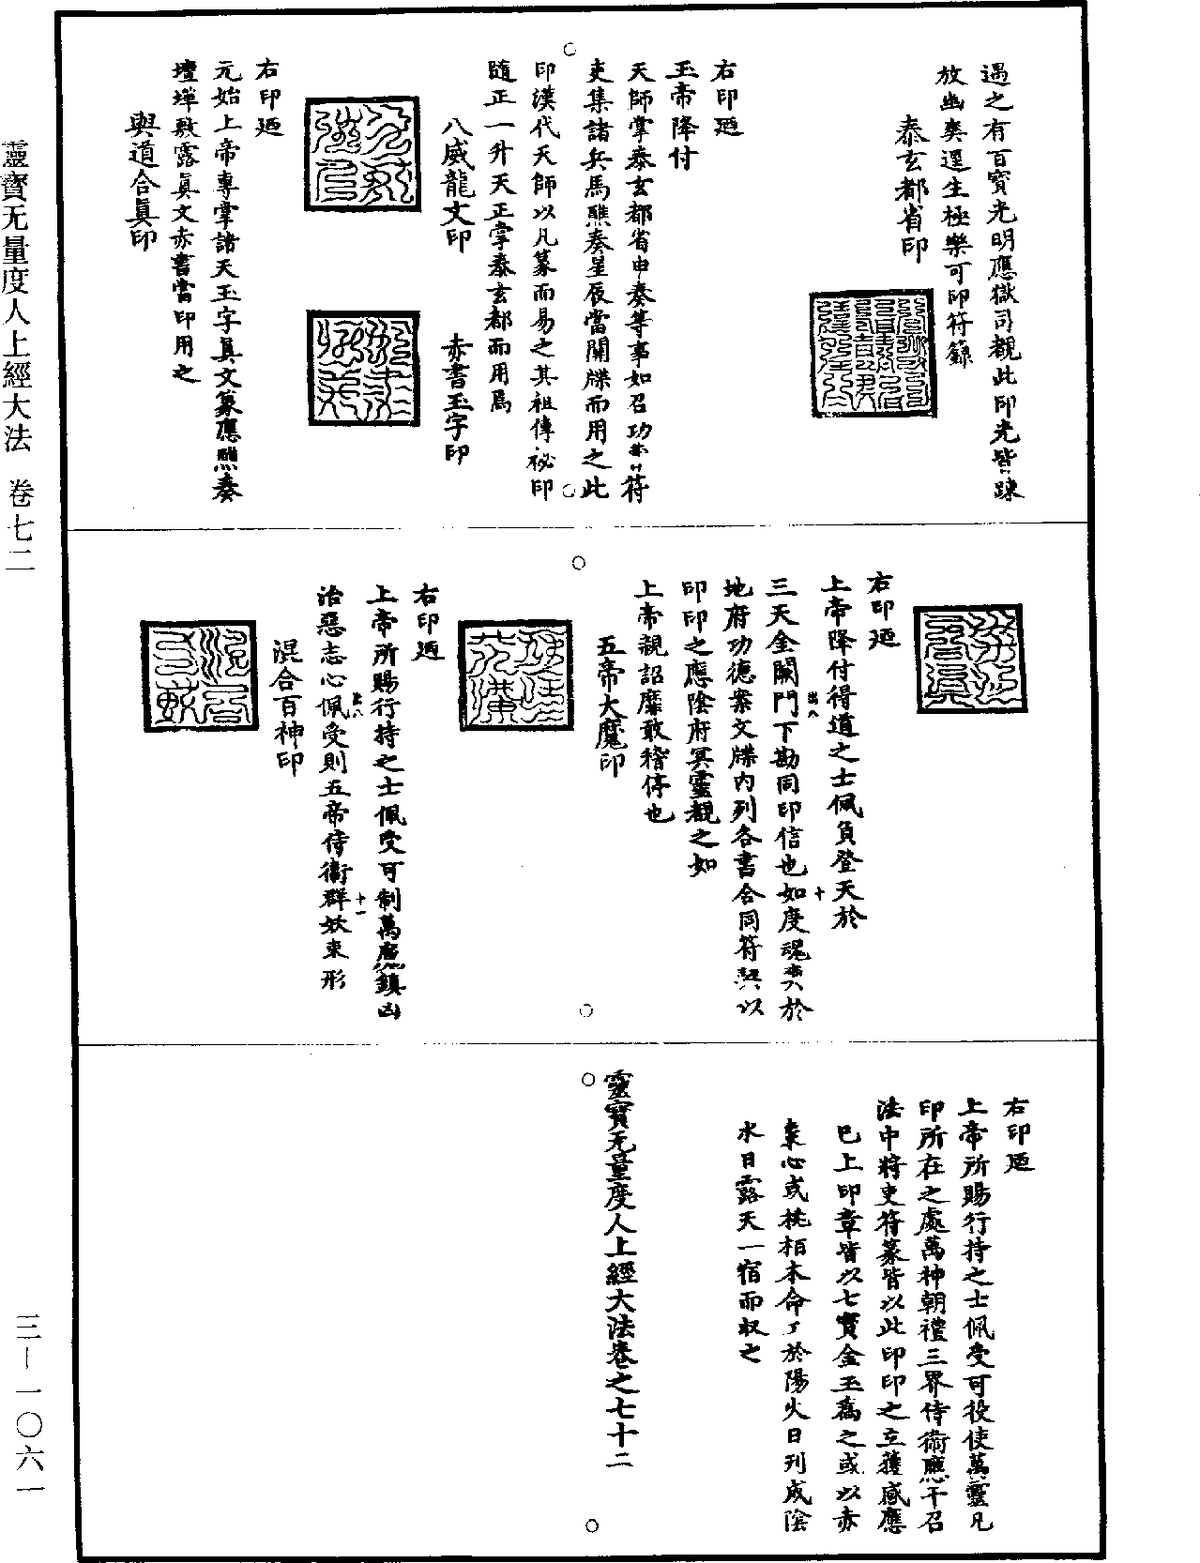 過之有百寶光明應獄司覩此印光皆踈
放幽爽逕生極樂可印符籙
泰玄都省印
右印廼
玉帝降付
天師掌泰玄都省申奏等事如召功曹符
吏集諸兵馬醮奏星辰當關牒而用之此
印漢代天師以凡篆而易之其祖傳祕印
隨正一升天正掌泰玄都而用焉
八威龍文印
赤書玉字印
右印廼
元始上帝專掌諸天玉字眞文篆應醮奏
壇墠敷露眞文赤書當印用之
與道合眞印
右印廼
上帝降付得道之士佩負登天於
三天金闕門下勘同印信也如度魂爽於
地府功德案文牒內列各書合同符契以
印印之應陰府冥靈覩之如
上帝親詔靡敢稽停也
五帝大魔印
右印廼
上帝所賜行持之士佩受可制萬魔鎮凶
治惡志心佩受則五帝侍衞群妖束形
混合百神印
十
十一
右印廼
上帝所賜行持之士佩受可役使萬靈凡
印所在之處萬神朝禮三界侍衞應干召
法中將吏符篆皆以此印印之立獲感應
已上印章皆以七寶金玉爲之或以赤
棗心或桃栢本命了於陽火日列成陰
水日露天一宿而收之
靈寶无量度人上經大法卷之七十二
靈寶无量度人上經大法 卷七二
三—一〇六一